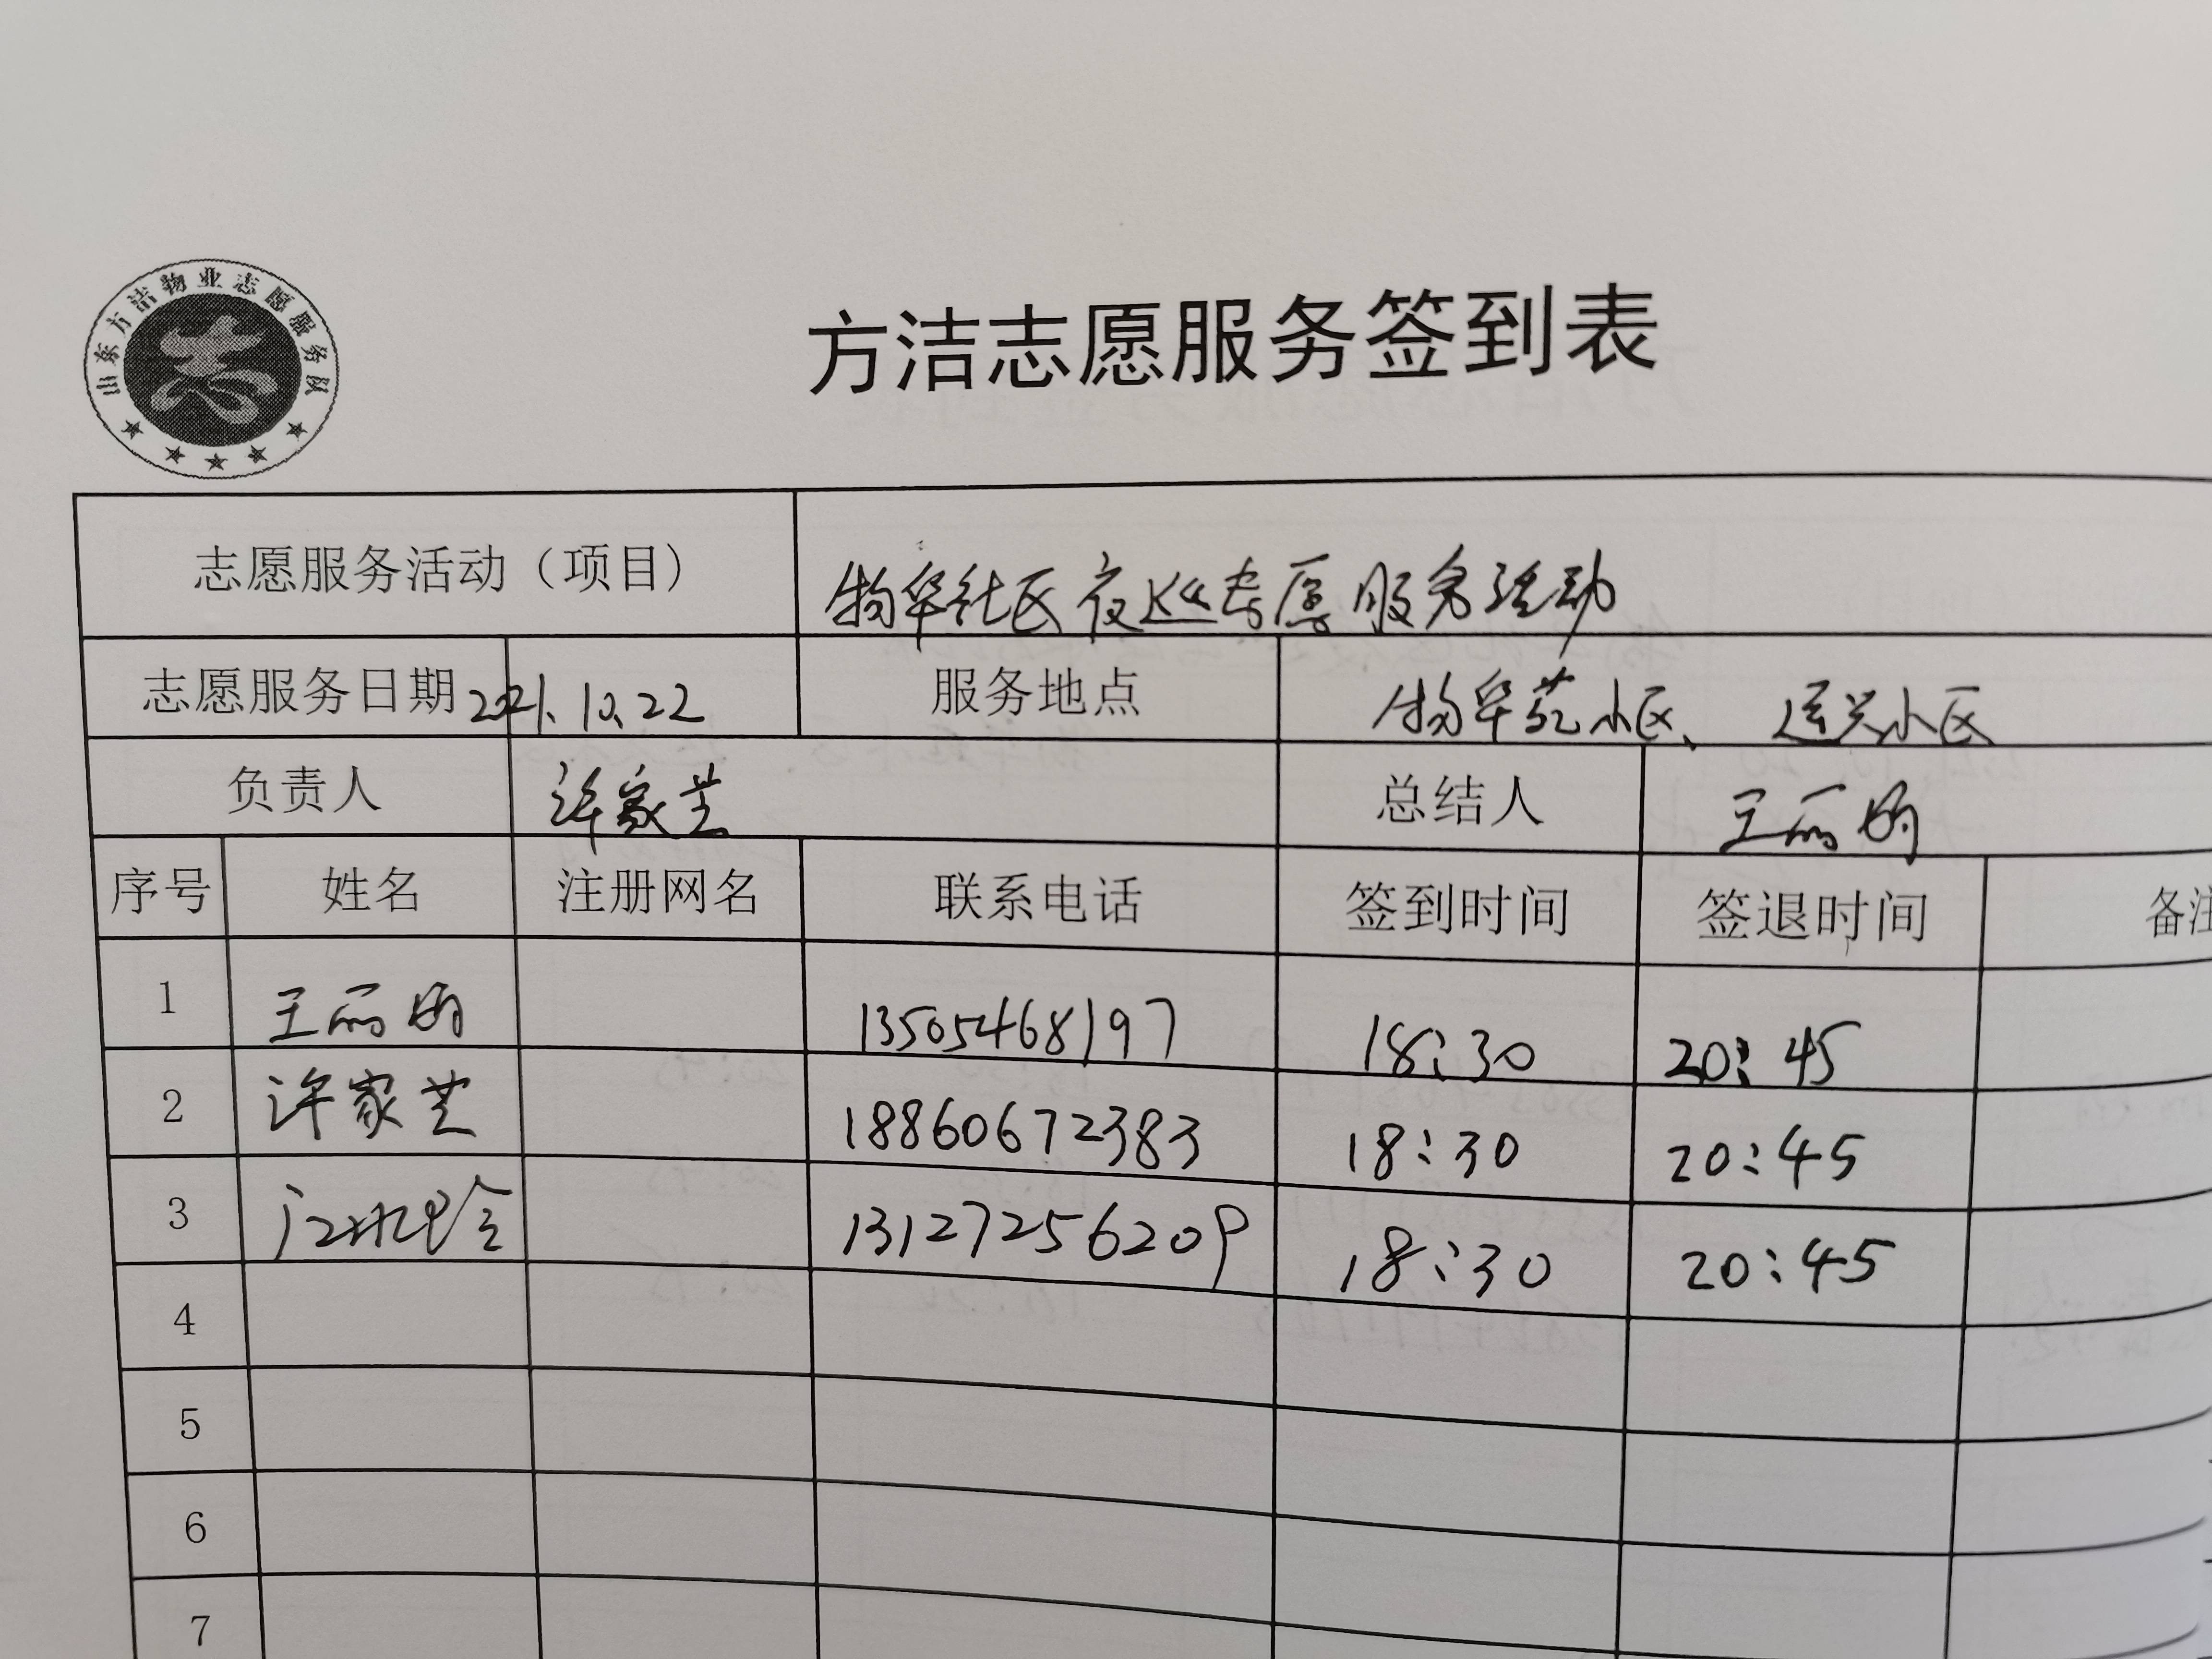 山东方洁物业志愿服务队
方洁志愿服务签到表
志愿服务活动（项目） 物华社区夜巡志愿服务活动
志愿服务日期 2021.10.22 服务地点 物华苑小区、运兴小区
负责人 许家芝 总结人 王丽
序号 姓名 注册网名 联系电话 签到时间 签退时间 备注
1 王丽 13505468197 18:30 20:45
2 许家芝 18860672383 18:30 20:45
3 13127256209 18:30 20:45
4
5
6
7